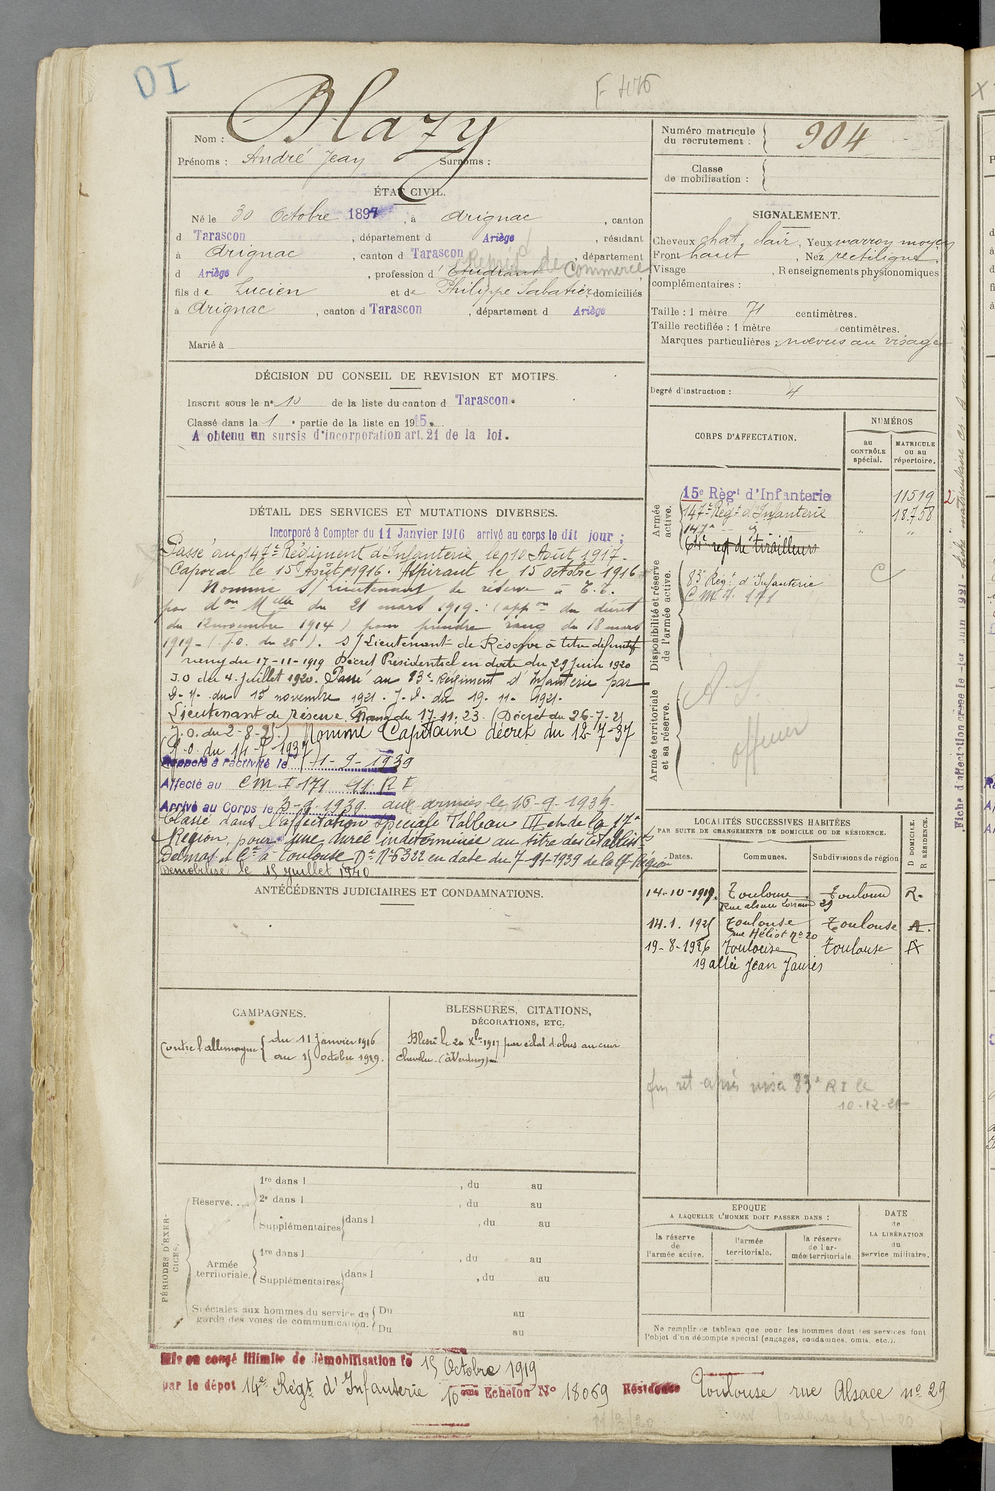 DI
F 476
Nom : Blazy
Prénoms : André Jean Surnoms :
Numéro matricule du recrutement : 904
Classe de mobilisation :
ÉTAT CIVIL.
Né le 30 Octobre 1897, à Arignac, canton
d Tarascon, département d Ariège, résidant
à Arignac, canton d Tarascon, département
d Ariège, profession d' Etudiant Représt de Commerce
fils de Lucien et de Philippe Sabatier, domiciliés
à Arignac, canton d Tarascon, département d Ariège
Marié à
SIGNALEMENT.
Cheveux chat. clair, Yeux marron moyen
Front haut, Nez rectiligne
Visage Renseignements physionomiques
complémentaires :
Taille : 1 mètre 71 centimètres.
Taille rectifiée : 1 mètre centimètres.
Marques particulières : nœvus au visage
Degré d'instruction : 4
DÉCISION DU CONSEIL DE REVISION ET MOTIFS.
Inscrit sous le n° 10 de la liste du canton d Tarascon.
Classé dans la 1e partie de la liste en 1915.
A obtenu un sursis d'incorporation art. 21 de la loi.
CORPS D'AFFECTATION.
NUMÉROS
au CONTRÔLE spécial.
MATRICULE ou au répertoire.
Armée active.
15e Régt d'Infanterie 11519
147e Régt d'Infanterie 18758
147e " "
64e regt de tirailleurs
Disponibilité et réserve de l'armée active.
83e Régt d'Infanterie
C M I 171
Armée territoriale et sa réserve.
A. S.
officier
DÉTAIL DES SERVICES ET MUTATIONS DIVERSES.
Incorporé à Compter du 11 Janvier 1916 arrivé au corps le dit jour ;
Passé au 147e Régiment d'Infanterie le 10 Août 1917.
Caporal le 15 Août 1916. Aspirant le 15 octobre 1916
Nommé S/Lieutenant de réserve à T.T.
par don Melle du 21 mars 1919. (appon du décret
du 12 novembre 1914) pour prendre rang du 18 mars
1919 - (J.O. du 25). S/Lieutenant de Réserve à titre définitif
rang du 17-11-1919 Décret Présidentiel en date du 29 Juin 1920
J.O du 4 Juillet 1920. Passé au 83e Régiment d'Infanterie par
D. M. du 15 novembre 1921. J.O. du 19.11.1921.
Lieutenant de réserve. Rang du 17.11.23. (Décret du 26-7-25
J.O. du 2-8-25) Nommé Capitaine décret du 12-7-37
(J.O. du 14-7 1937)
Rappelé à l'activité le 1-9-1939
Affecté au C M I 171 91. R I
Arrivé au Corps le 3-9 1939 aux armées le 16-9-1939.
Classé dans l'affectation spéciale Tableau III et de la 17e
Région, pour une durée indéterminée au titre des Établists
Delmas et Cie à Toulouse - Dn N° 6322 en date du 7-11-1939 de la 17e Région
Démobilisé le 15 juillet 1940
LOCALITÉS SUCCESSIVES HABITÉES
PAR SUITE DE CHANGEMENTS DE DOMICILE OU DE RÉSIDENCE.
Dates. Communes. Subdivisions de région. D DOMICILE. R RÉSIDENCE.
14-10-1919. Toulouse Toulouse R.
Rue alsace Lorraine 29
14.1.1925 Toulouse Toulouse R.
rue Héliot n° 20
19-8-1926 Toulouse Toulouse R
19 allée Jean Jaurès
ANTÉCÉDENTS JUDICIAIRES ET CONDAMNATIONS.
CAMPAGNES.
Contre l'allemagne du 11 Janvier 1916
au 15 octobre 1919.
BLESSURES, CITATIONS,
DÉCORATIONS, ETC.
Blessé le 20 Xbre 1917 par éclat d'obus au cuir
chevelu. (à Verdun)
83e R I le
10-12-21
PÉRIODES D'EXERCICES.
Réserve....
1re dans l , du au
2e dans l , du au
Supplémentaires dans l , du au
Armée territoriale.
1re dans l , du au
Supplémentaires dans l , du au
Spéciales aux hommes du service de garde des voies de communication.
Du au
Du au
EPOQUE
A LAQUELLE L'HOMME DOIT PASSER DANS :
la réserve de l'armée active.
l'armée territoriale.
la réserve de l'armée territoriale.
DATE de LA LIBÉRATION du service militaire.
Ne remplir ce tableau que pour les hommes dont les services font
l'objet d'un décompte spécial (engagés, condamnés, omis, etc.).
Mis en congé illimité de démobilisation le 15 Octobre 1919
par le dépôt 14e Régt d'Infanterie 10eme Echelon N° 18069 Résidence Toulouse rue Alsace n° 29